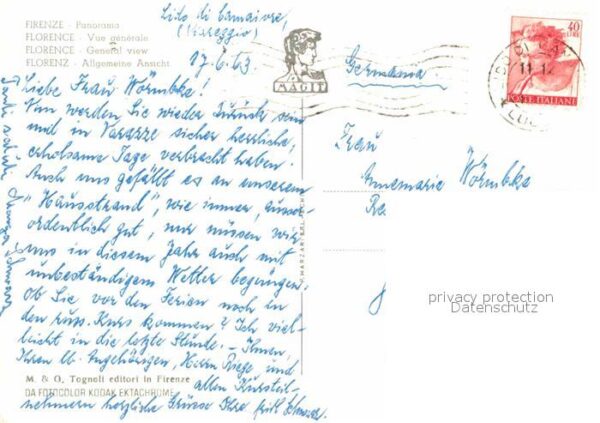 FIRENZE - Panorama
FLORENCE - Vue générale
FLORENCE - General view
FLORENZ - Allgemeine Ansicht
Lido di Camaiore,
(Viareggio)
17.6.63.
Liebe Frau Wörmbke!
Nun werden Sie wieder zurück sein
und in Varazze sicher herrliche,
erholsame Tage verbracht haben!
Auch uns gefällt es an unserem
"Hausstrand", wie immer, ausser-
ordentlich gut, nur müssen wir
uns in diesem Jahr auch mit
unbeständigem Wetter begnügen,
ob Sie vor den Ferien noch in
den russ. Kurs kommen? Ich viel-
leicht in die letzte Stunde. - Ihnen,
Ihren lb. Angehörigen, Herrn Riege und
allen Kursteil-
nehmern herzliche Grüsse Ihre
Tanti saluti
M. & G. Tognoli editori in Firenze
DA FOTOCOLOR KODAK EKTACHROME
MARZARI
MAGIT
40
LIRE
POSTE ITALIANE
11-12
Germania
Frau
Annemarie Wörmbke
privacy protection
Datenschutz